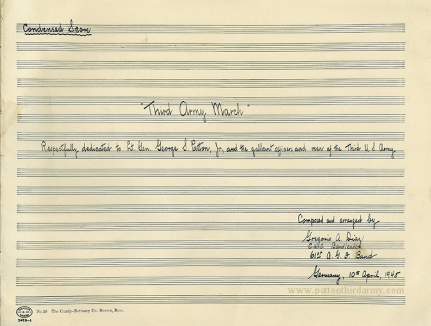 Condensed Score
"Third Army March"
Respectfully dedicated to Lt. Gen. George S. Patton, Jr. and the gallant officers and men of the Third U.S. Army.
Composed and arranged by
Gregorio A. Diaz
61st A.G.F. Band
Germany, 10th April, 1945
www.pattonthirdarmy.com
No. 29 The Cundy-Bettoney Co. Boston, Mass.